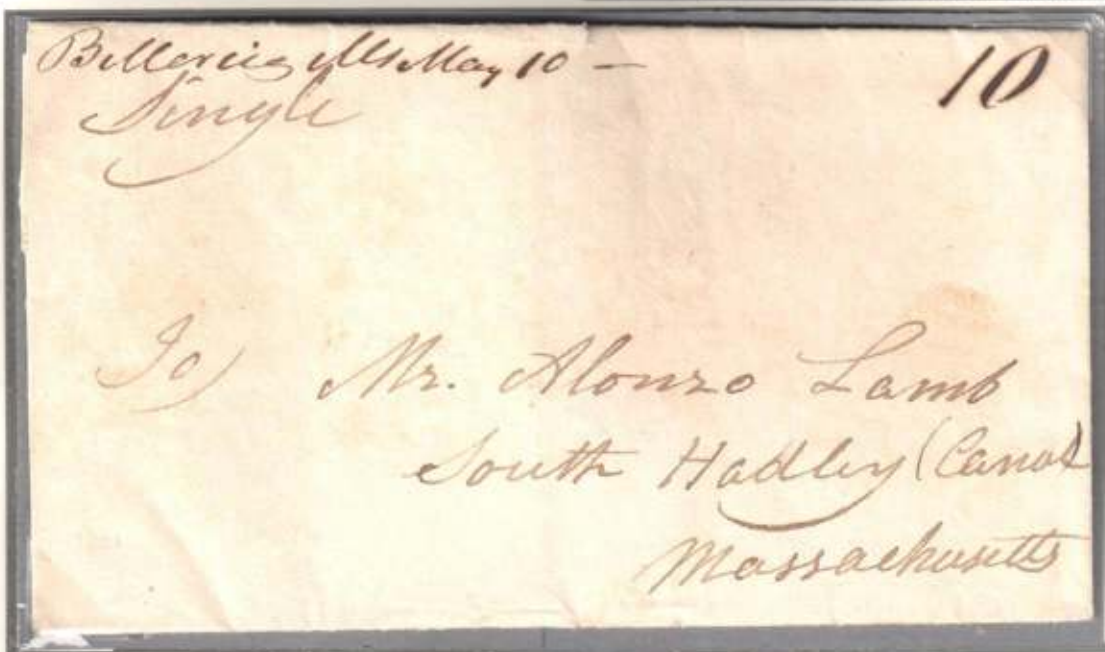 Billerica Ms May 10 — 10
Single
To Mr. Alonzo Lamb
South Hadley (Canal
Massachusetts